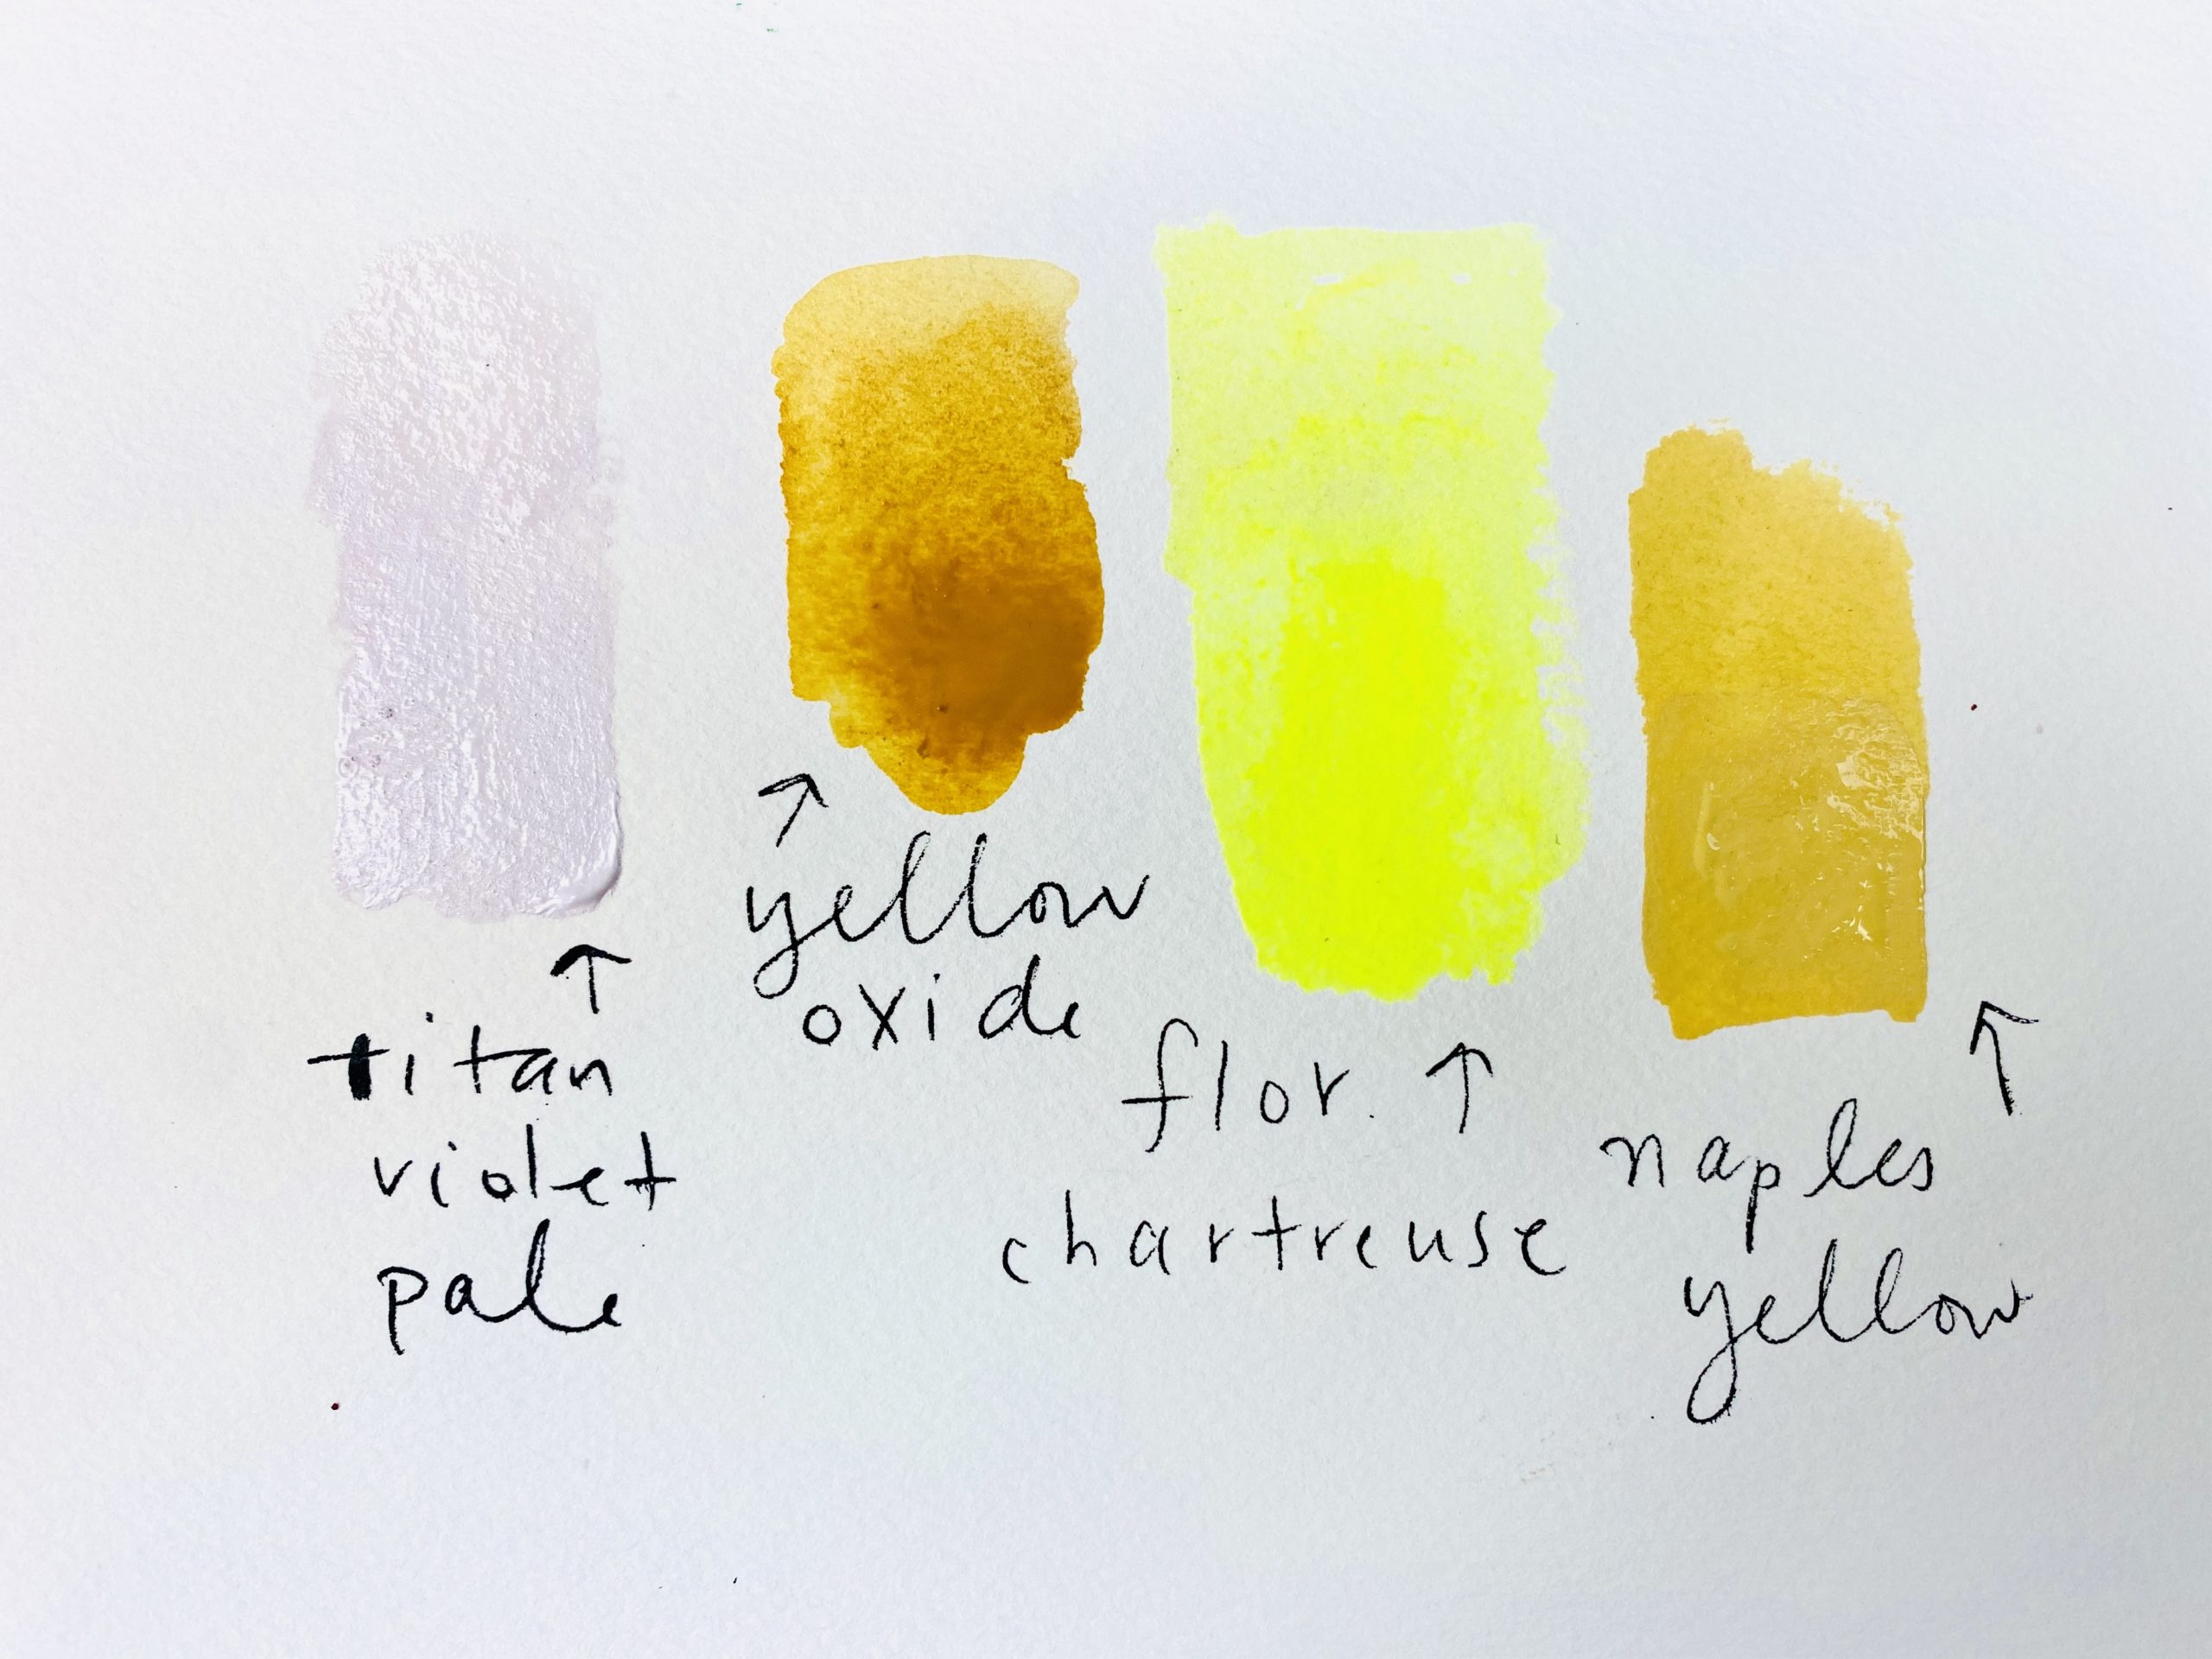 titan
violet
pale
yellow
oxide
flor.
chartreuse
naples
yellow